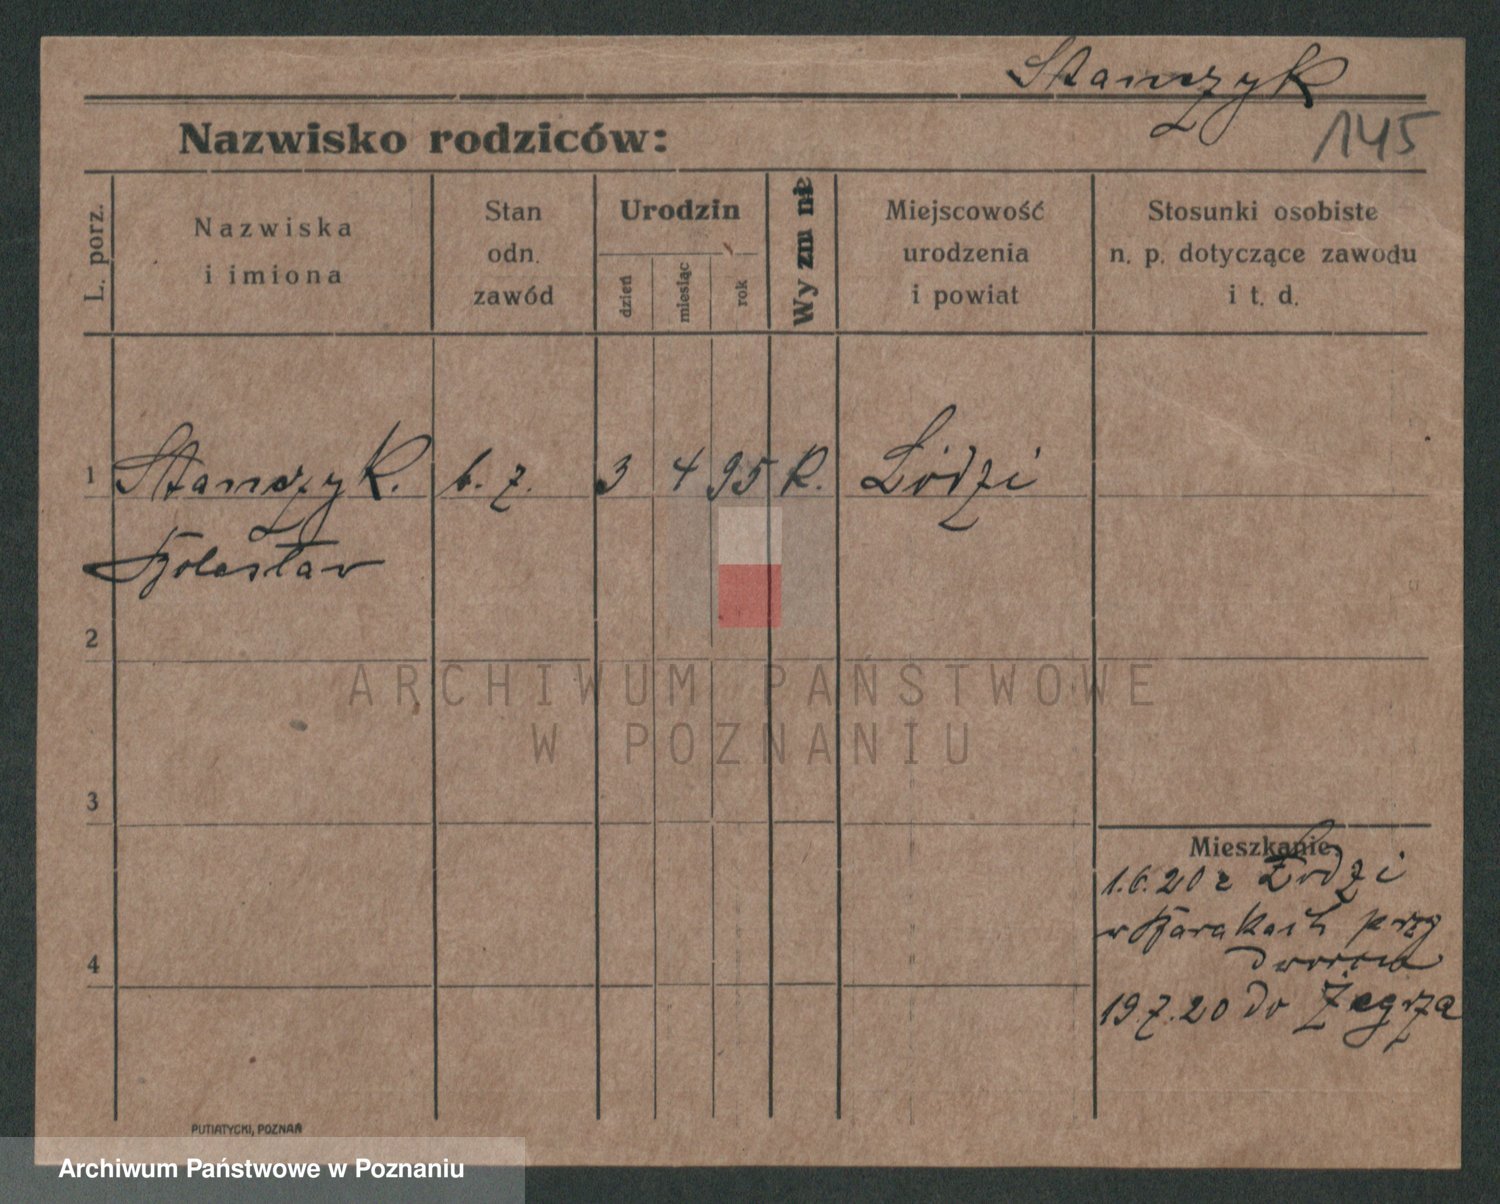 Stanczyk
145
Nazwisko rodziców:
L. porz.
Nazwiska
i imiona
Stan
odn.
zawód
Urodzin
dzień
miesiąc
rok
Wyznanie
Miejscowość
urodzenia
i powiat
Stosunki osobiste
n. p. dotyczące zawodu
i t. d.
1 Stanczyk. b. z. 3 4 95 R. Łódzi
Bolesław
2
ARCHIWUM PAŃSTWOWE
W POZNANIU
3
Mieszkanie
1.6.20 z Łodzi
w Barakach przy
dworcu
4
19.7.20 do Zegrza
PUTIATYCKI, POZNAŃ
Archiwum Państwowe w Poznaniu